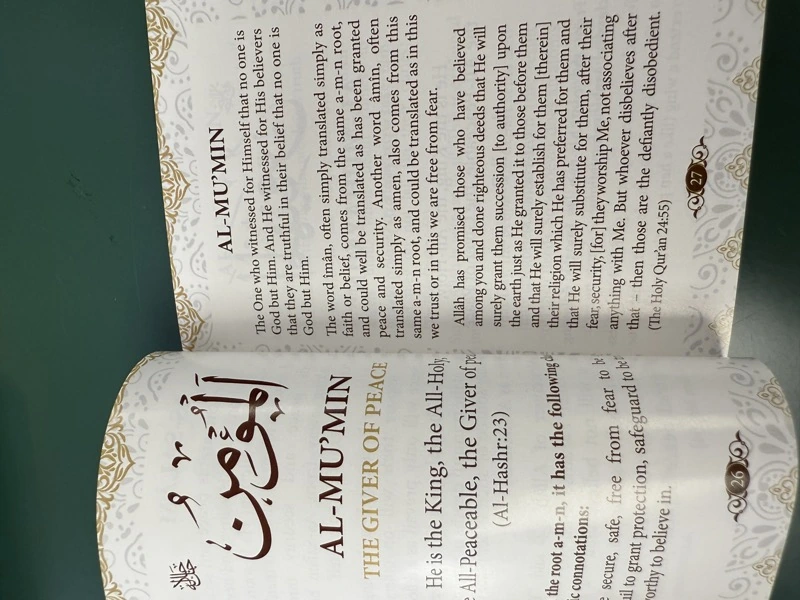 جل جلاله
المؤمن
AL-MU’MIN
THE GIVER OF PEACE
He is the King, the All-Holy,
All-Peaceable, the Giver of
(Al-Hashr:23)
the root a-m-n, it has the following
connotations:
secure, safe, free from fear to
to grant protection, safeguard to be
to believe in.
26
AL-MU’MIN
The One who witnessed for Himself that no one is
God but Him. And He witnessed for His believers
that they are truthful in their belief that no one is
God but Him.
The word îmân, often simply translated simply as
faith or belief, comes from the same a-m-n root,
and could well be translated as has been granted
peace and security. Another word âmîn, often
translated simply as amen, also comes from this
same a-m-n root, and could be translated as in this
we trust or in this we are free from fear.
Allâh has promised those who have believed
among you and done righteous deeds that He will
surely grant them succession [to authority] upon
the earth just as He granted it to those before them
and that He will surely establish for them [therein]
their religion which He has preferred for them and
that He will surely substitute for them, after their
fear, security, [for] they worship Me, not associating
anything with Me. But whoever disbelieves after
that – then those are the defiantly disobedient.
(The Holy Qur’an 24:55)
27